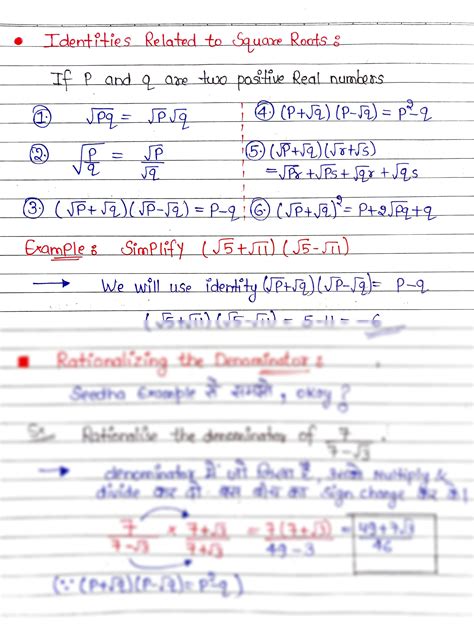 • Identities Related to Square Roots :
If P and q are two positive Real numbers
①. √Pq = √P√q
②. √(P/q) = √P/√q
③. (√P+√q)(√P-√q) = P-q
④. (P+√q)(P-√q) = P²-q
⑤. (√P+√q)(√r+√s)
= √Pr+√Ps+√qr+√qs
⑥. (√P+√q)² = P+2√Pq+q
Example : Simplify (√5+√11)(√5-√11)
→ We will use identity (√P+√q)(√P-√q) = P-q
(√5+√11)(√5-√11) = 5-11 = -6
■ Rationalizing the Denominator :
Seedha Example से समझते, okay?
Ex. Rationalise the denominator of 7/(7-√3).
→ denominator में जो लिखा है, उससे multiply &
divide कर दो बस बीच का sign change कर के।
7/(7-√3) × (7+√3)/(7+√3) = 7(7+√3)/(49-3) = (49+7√3)/46
(∵ (P+√q)(P-√q) = P²-q)